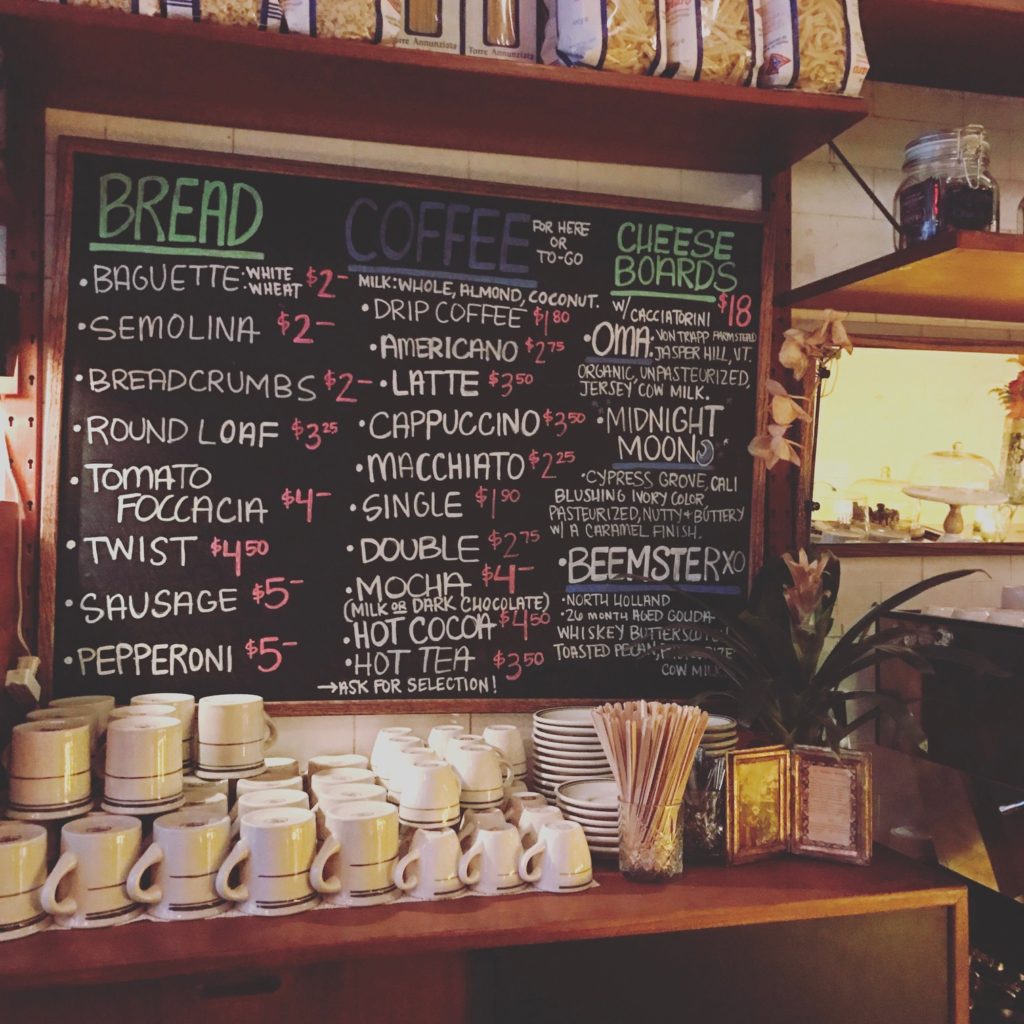 Torre Annunziata
Torre Annunziata
BREAD
• BAGUETTE • WHITE $2-
• WHEAT
• SEMOLINA $2-
• BREADCRUMBS $2-
• ROUND LOAF $3.25
• TOMATO
FOCCACIA $4-
• TWIST $4.50
• SAUSAGE $5-
• PEPPERONI $5-
COFFEE FOR HERE
OR
TO-GO
MILK: WHOLE, ALMOND, COCONUT.
• DRIP COFFEE $1.80
• AMERICANO $2.75
• LATTE $3.50
• CAPPUCCINO $3.50
• MACCHIATO $2.25
• SINGLE $1.90
• DOUBLE $2.75
• MOCHA $4-
(MILK OR DARK CHOCOLATE)
• HOT COCOA $4.50
• HOT TEA $3.50
→ASK FOR SELECTION!
CHEESE
BOARDS
W/ CACCIATORINI $18
• OMA • VON TRAPP FARMSTEAD
• JASPER HILL, VT.
ORGANIC, UNPASTEURIZED,
JERSEY COW MILK.
• MIDNIGHT
MOON
• CYPRESS GROVE, CALI
BLUSHING IVORY COLOR
PASTEURIZED, NUTTY + BUTTERY
W/ A CARAMEL FINISH.
• BEEMSTER XO
• NORTH HOLLAND
• 26 MONTH AGED GOUDA
WHISKEY
TOASTED PECAN,
COW MILK